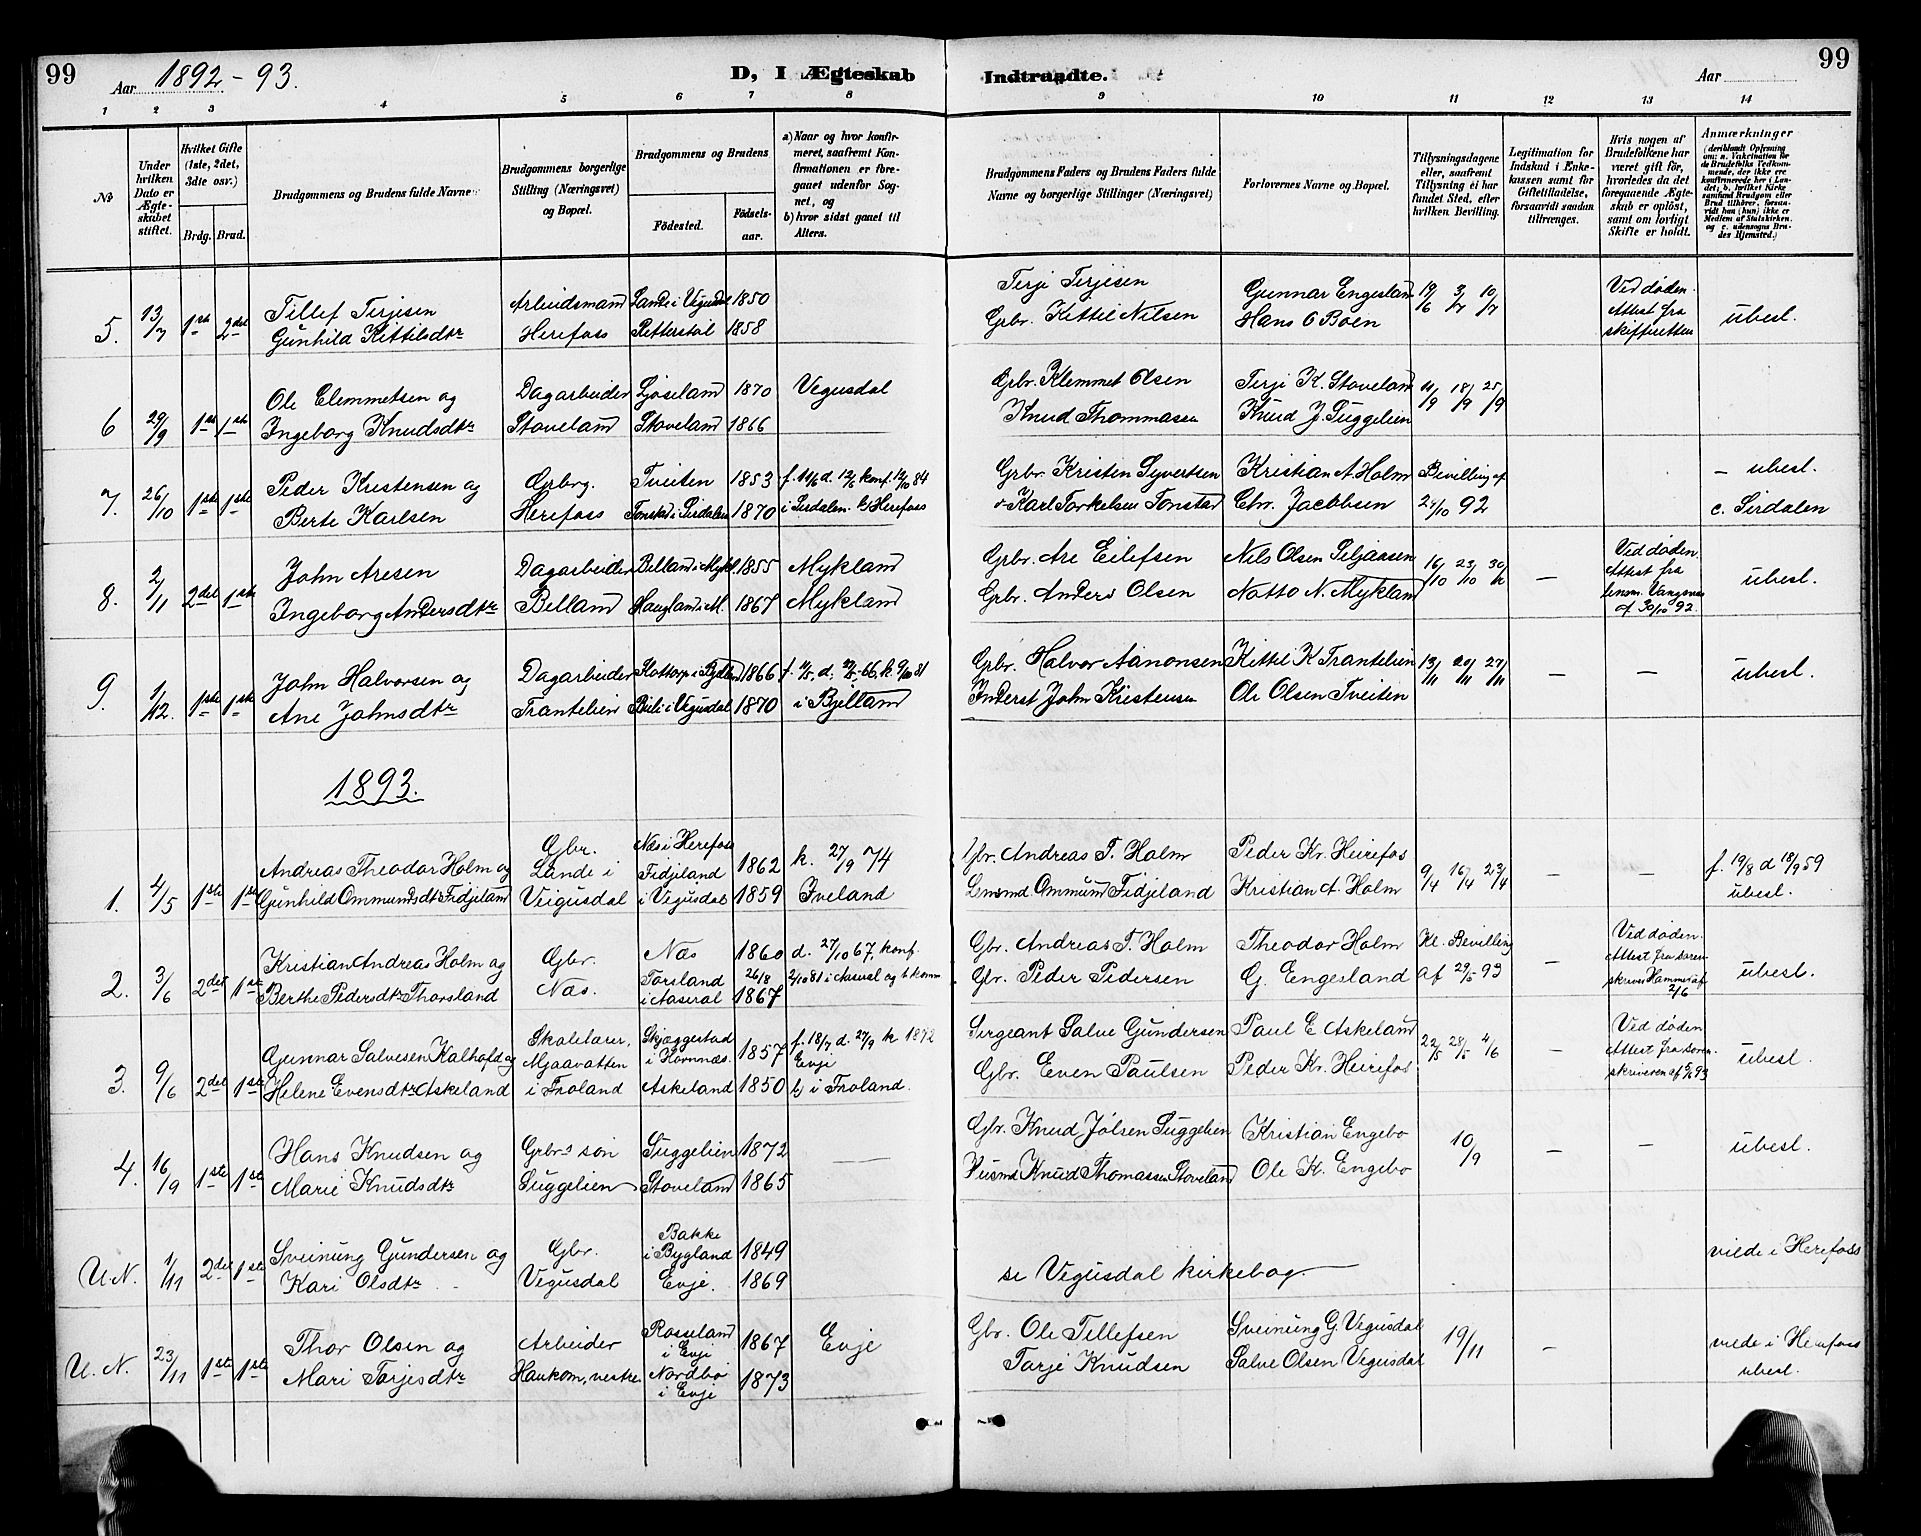 99
Aar 1892-93.
D, I Ægteskab Indtraadte.
Aar
99
1 2 3 4 5 6 7 8 9 10 11 12 13 14
№
Under hvilken Dato er Ægteskabet stiftet.
Hvilket Gifte (1ste, 2det, 3dte osv.)
Brdg. Brud.
Brudgommens og Brudens fulde Navne.
Brudgommens borgerlige Stilling (Næringsvei) og Bopæl.
Brudgommens og Brudens
Fødested.
Fødselsaar.
a) Naar og hvor konfirmeret, saafremt Konfirmationen er foregaaet udenfor Sognet, og
b) hvor sidst gaaet til Alters.
Brudgommens Faders og Brudens Faders fulde Navne og borgerlige Stillinger (Næringsvei)
Forlovernes Navne og Bopæl.
Tillysningsdagene eller, saafremt Tillysning ei har fundet Sted, efter hvilken Bevilling.
Legitimation for Indskud i Enkekassen samt for Giftetilladelse, forsaavidt saadan tiltrænges.
Hvis nogen af Brudefolkene har været gift før, hvorledes da det foregaaende Ægteskab er opløst, samt om lovligt Skifte er holdt.
Anmærkninger (deriblandt Oplysning om: a. Vakcination for de Brudefolks Vedkommende, der ikke ere konfirmerede her i Landet; b. hvilket Kirkesamfund Brudgom eller Brud tilhører, forsaavidt han (hun) ikke er Medlem af Statskirken, og c. udensogns Brudes Hjemsted.)
5. 13/7 1ste 2det Tillef Terjesen Arbeidsmand Lande i Vegusdal 1850 Terje Terjesen Gunnar Engesland 19/6 3/7 10/7 Ved døden. Attest fra skifteretten ubesl.
Gunhild Kittilsdtr Herefoss Retterstøl 1858 Grbr. Kittil Nilsen Hans O Boen
6 29/9 1ste 1ste Ole Clemmetsen og Dagarbeider Ljøseland 1870 Vegusdal Grbr. Klemmet Olsen Terje K. Stoveland 11/9 18/9 25/9
Ingeborg Knudsdtr Stoveland Stoveland 1866 Knud Thommassen Knud J. Suggelien
7. 26/10 1ste 1ste Peder Kristensen og Grbrg. Tveiten 1853 Grbr. Kristen Syvertsen Kristian A. Holm Bevilling af - ubesl.
Berte Karlsen Herefoss Tonstad i Sirdalen 1870 i Sirdalen. b) Herefoss Karl Torkelsen Tonstad Chr. Jacobsen 24/10 92 c. Sirdalen
8. 2/11 2det 1ste John Aresen Dagarbeider Belland i Mykl. 1855 Mykland Grbr. Are Eilefsen Nils Olsen Seljaasen 16/10 23/10 30/10 - Ved døden. Attest fra lensm. Vangsnes af 30/10 92. ubesl.
Ingeborg Andersdtr Belland Haugland i M. 1867 Mykland Grbr. Anders Olsen Notto N. Mykland
9. 1/12. 1ste 1ste John Halvorsen og Dagarbeider 1866 Grbr. Halvor Aanonsen Kittil K Trantelien 13/11 20/11 27/11 - - ubesl.
Ane Johnsdtr Trantelien i Vegusdal 1870 i Bjelland Inderst John Kristensen Ole Olsen Tveiten
1893.
1. 4/5 1ste 1ste Andreas Theodor Holm og Gbr. Lande i Veigusdal Næs i Herefoss 1862 k. 27/9 74 Gbr. Andreas T. Holm Peder Kr. Heirefos 9/4 16/4 23/4 - - f. 19/8 d 18/9 59 ubesl.
Gunhild Ommundsdtr Fidjeland Fidjeland i Vegusdal 1859 Iveland Lensmd Ommund Fidjeland Kristian A. Holm
2. 3/6 2det 1ste Kristian Andreas Holm og Gbr. Næs 1860 d. 27/10 67. konf. Gbr. Andreas T. Holm Theodor Holm Kl. Bevilling - Ved døden. Attest fra soren-skriver Hammer af 2/6 ubesl.
Berthe Pedersdtr Thorsland Næs. Torsland i Aaseral 26/8 1867 2/10 81 i Aaseral og t. komm Gbr. Peder Pedersen G. Engesland af 29/5 93
3. 9/6 2det 1ste Gunnar Salvesen Kalhofd og Skolelærer, Mjaavatten i Froland Skjæggestad i Hornnæs. 1857 f. 18/7 d. 27/9 k 1872 Evje Sergeant Salve Gundersen Paul E Askeland 22/5 28/5 4/6 - Ved døden Attest fra soren-skriveren af 93 ubesl.
Helene Evensdtr Askeland Askeland 1850 b) i Froland. Gbr. Even Paulsen Peder Kr. Heirefos
4. 16/9 1ste 1ste Hans Knudsen og Grbrs søn Suggelien 1872 — Gbr. Knud Jølsen Suggelien Kristian Engebo 10/9 - - ubesl.
Marie Knudsdtr Suggelien Stoveland 1865 Husmd Knud Thomassen Stoveland Ole K. Engebo
U.N. 1/11 2det 1ste Sveinung Gundersen og Gbr. Bakke i Bygland 1849 se Vegusdal kirkebog. viede i Herefoss
Kari Olsdtr Vegusdal Evje. 1869
U.N. 23/11 1ste 1ste Thor Olsen og Arbeider Rosseland i Evje 1867 Evje Gbr. Ole Tellefsen Sveinung G. Vegusdal 19/11 - viede i Herefoss ubesl.
Mari Tarjesdtr Haukom, vestre Nordbø i Evje 1873 Tarje Knudsen Salve Olsen Vegusdal